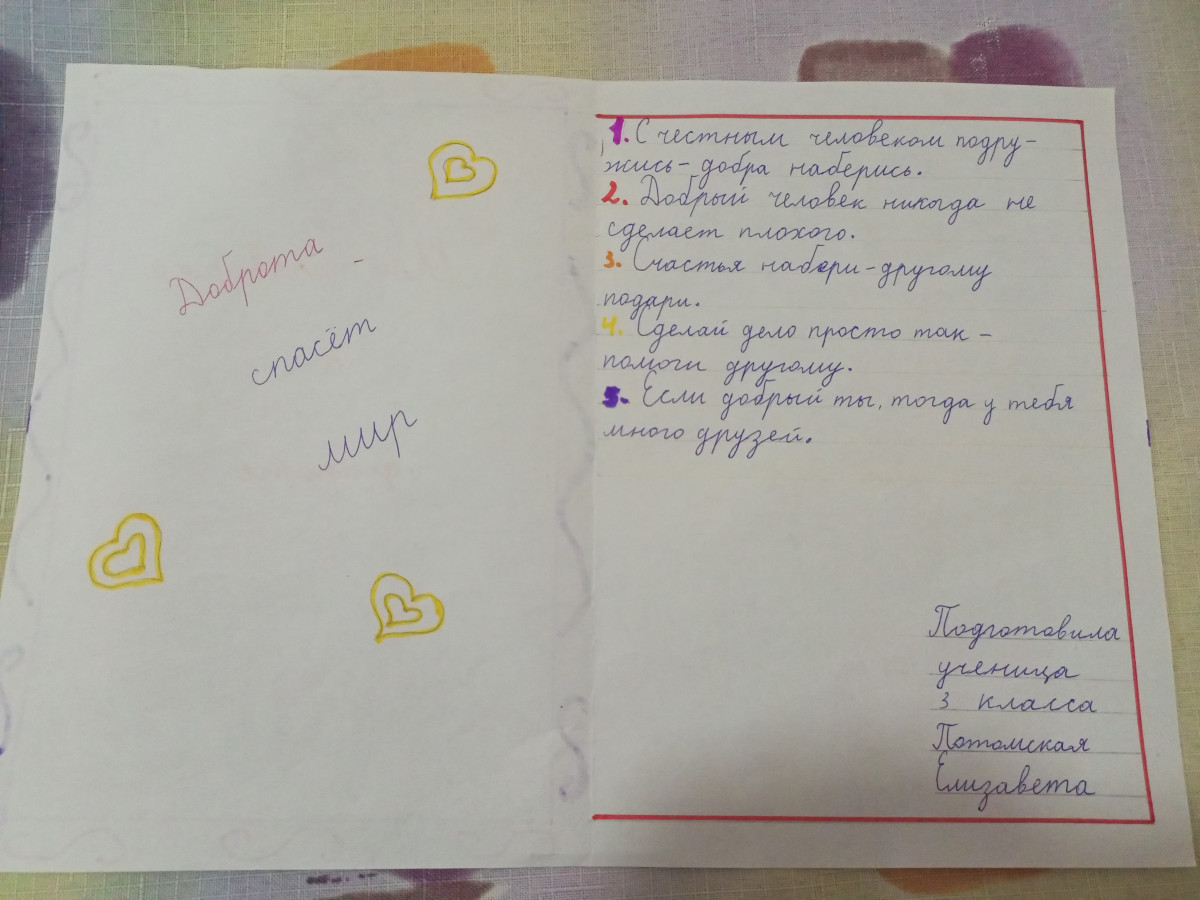 Доброта
спасёт
мир
1. С честным человеком подру-
жись - добра наберись.
2. Добрый человек никогда не
сделает плохого.
3. Счастья набери - другому
подари.
4. Сделай дело просто так -
помоги другому.
5. Если добрый ты, тогда у тебя
много друзей.
Подготовила
ученица
3 класса
Потомская
Елизавета